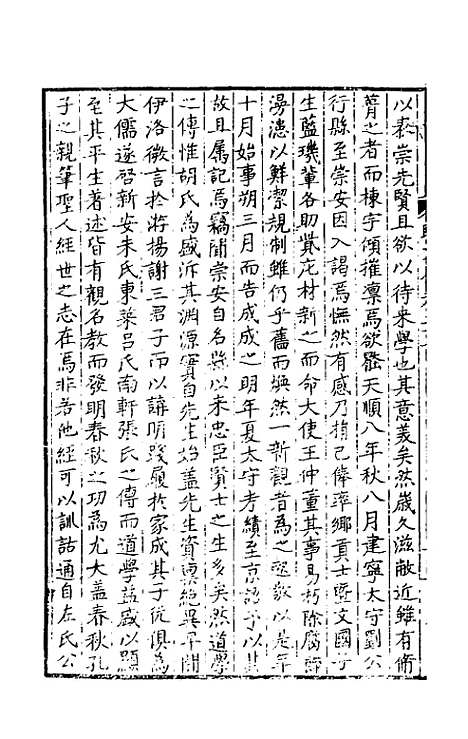 以表崇先賢且欲以待来學也其意義矣然歲久滋敝近雖有脩
葺之者而棟宇傾摧凛焉欲壓天順八年秋八月建寧太守劉公
行縣至崇安因入謁焉憮然有感乃捐己俸率鄉貢士暨文國子
生藍璣軰各助貲庀材新之而命大使王仲董其事易朽除腐
漫漶以鮮潔規制雖仍乎舊而煥然一新觀者為之起敬以是年
十月始事朔三月而告成成之明年夏太守考績至京語予以其
故且属記焉竊聞崇安自名縣以来忠臣賢士之生多矣然道學
之傳惟胡氏為盛泝其淵源實自先生始盖先生資禀絕異早聞
伊洛微言扵游揚謝三君子而以講明踐履扵家成其子侄俱為
大儒遂啓新安朱氏東萊吕氏南軒張氏之傳而道學益盛以顯
至其平生著述皆有觀名教而發明春秋之功為尤大盖春秋孔
子之親筆聖人經世之志在焉非若他經可以訓詁通自左氏公